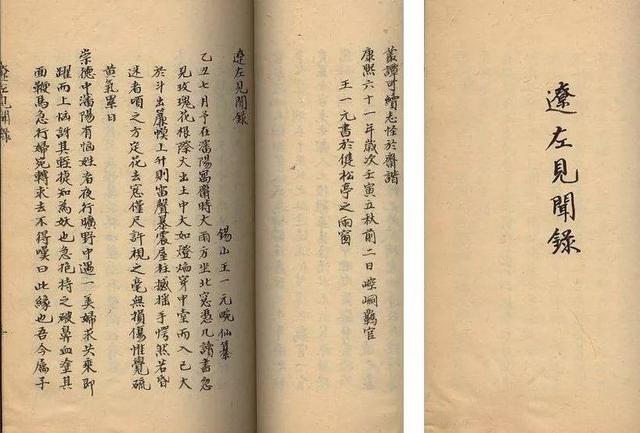 遼左見聞錄
叢譚可續志怪於齊諧
康熙六十一年歲次壬寅立秋前二日崆峒鷄官
王一元書於健松亭之雨窗
遼左見聞錄
錫山王一元畹仙纂
乙丑七月予在瀋陽寓齋時大雨方坐北窓凭几讀書忽
見玫瑰花根際火出土中大如燈焰穿中堂而入已大
於斗出簾幙上升則雷聲暴震屋柱撼搖予愕然若昏
迷者頃之方定花去窓僅尺許視之毫無損傷惟覺硫
黃氣累日
崇德中瀋陽有惱姓者夜行曠野中遇一美婦求共乘即
躍而上惱訝其輕捷知為妖也急抱持之破鼻血塗其
面鞭馬急行婦宛轉求去不得嘆曰此緣也吾今屬子
遼左見聞錄